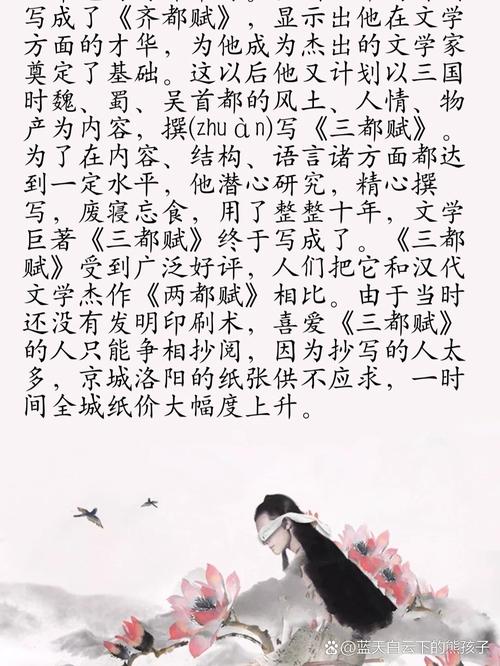 写成了《齐都赋》，显示出他在文学
方面的才华，为他成为杰出的文学家
奠定了基础。这以后他又计划以三国
时魏、蜀、吴首都的风土、人情、物
产为内容，撰(zhuàn)写《三都赋》。
为了在内容、结构、语言诸方面都达
到一定水平，他潜心研究，精心撰
写，废寝忘食，用了整整十年，文学
巨著《三都赋》终于写成了。《三都
赋》受到广泛好评，人们把它和汉代
文学杰作《两都赋》相比。由于当时
还没有发明印刷术，喜爱《三都赋》
的人只能争相抄阅，因为抄写的人太
多，京城洛阳的纸张供不应求，一时
间全城纸价大幅度上升。
蓝天白云下的熊孩子